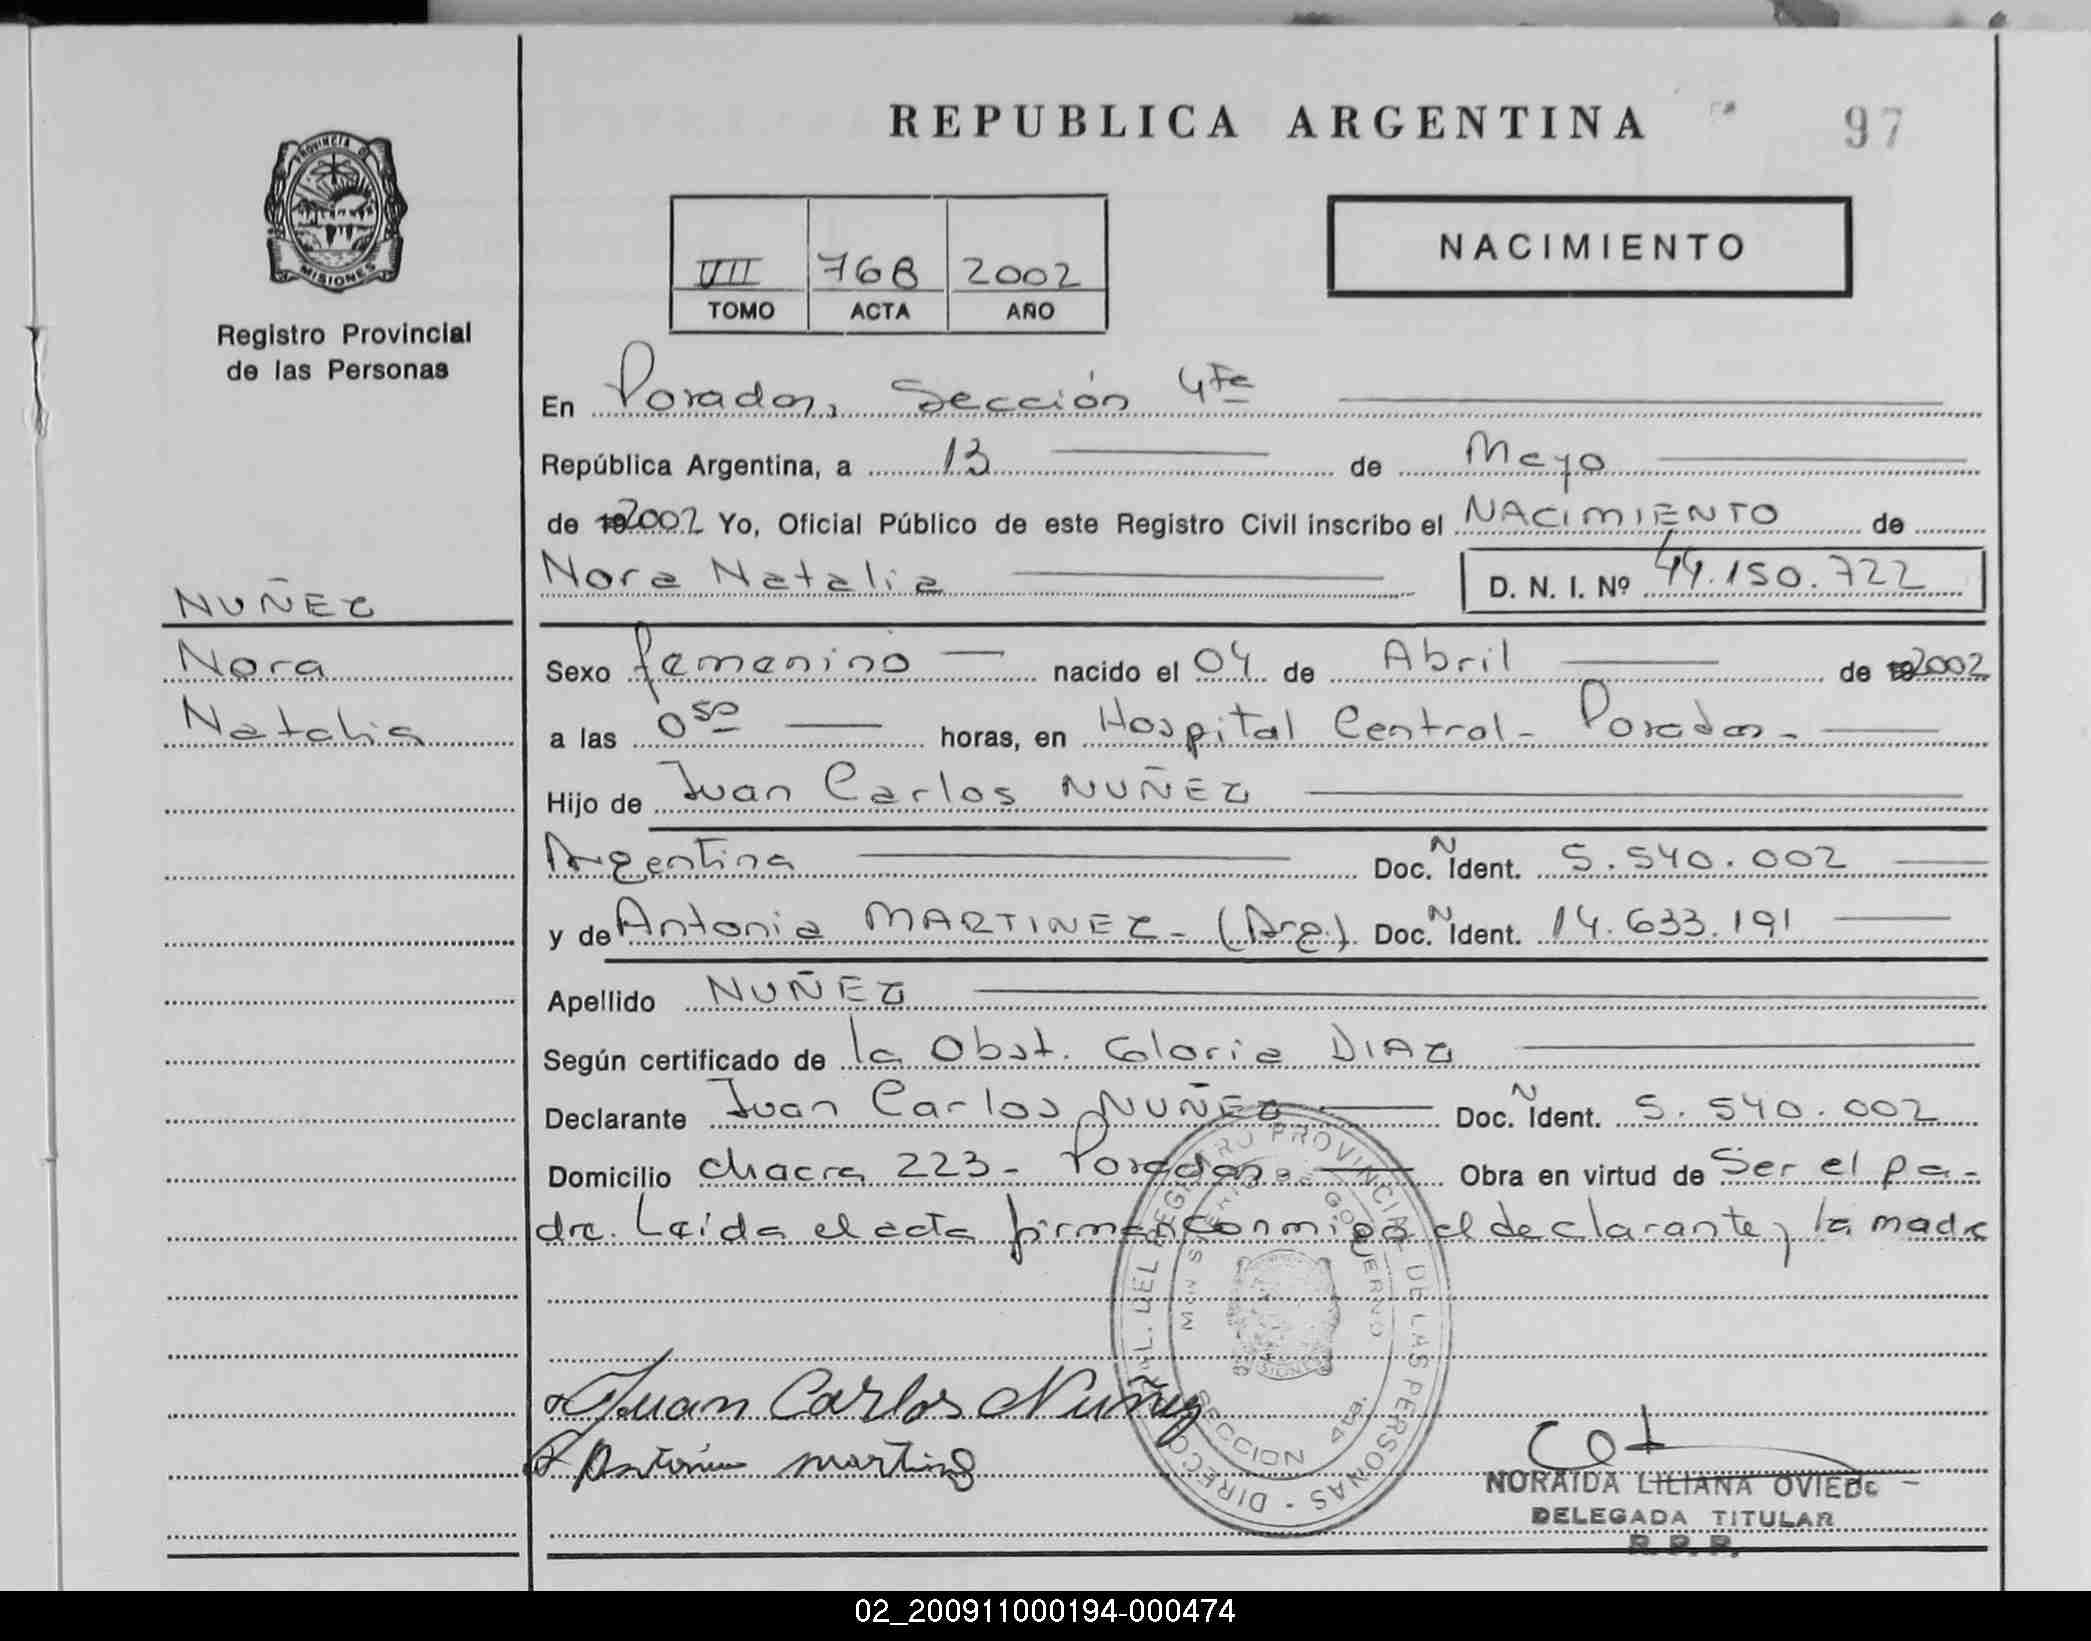 REPUBLICA ARGENTINA
97
PROVINCIA DE
MISIONES
Registro Provincial
de las Personas
VII 768 2002
TOMO ACTA AÑO
NACIMIENTO
En Posadas, Sección 4ta
República Argentina, a 13 de Mayo
de 192002 Yo, Oficial Público de este Registro Civil inscribo el NACIMIENTO de
Nora Natalia D. N. I. Nº 44.150.722
NUÑEZ
Nora
Natalia
Sexo femenino nacido el 04 de Abril de 192002
a las 0 50 horas, en Hospital Central - Posadas -
Hijo de Juan Carlos NUÑEZ
Argentina Doc. N Ident. 5.540.002
y de Antonia MARTINEZ - (Arg.) Doc. N Ident. 14.633.191
Apellido NUÑEZ
Según certificado de la Obst. Gloria DIAZ
Declarante Juan Carlos NUÑEZ Doc. N Ident. 5.540.002
Domicilio chacra 223 - Posadas. Obra en virtud de Ser el pa-
dre. Leida el acta firman conmigo el declarante y la madre
Juan Carlos Nuñez
Antonia martinez
DIRECC. GRAL. DEL REGISTRO PROVINCIAL DE LAS PERSONAS -
MINISTERIO DE GOBIERNO
MISIONES
SECCION 4ta.
NORAIDA LILIANA OVIEDO
DELEGADA TITULAR
R. P. P.
02_200911000194-000474